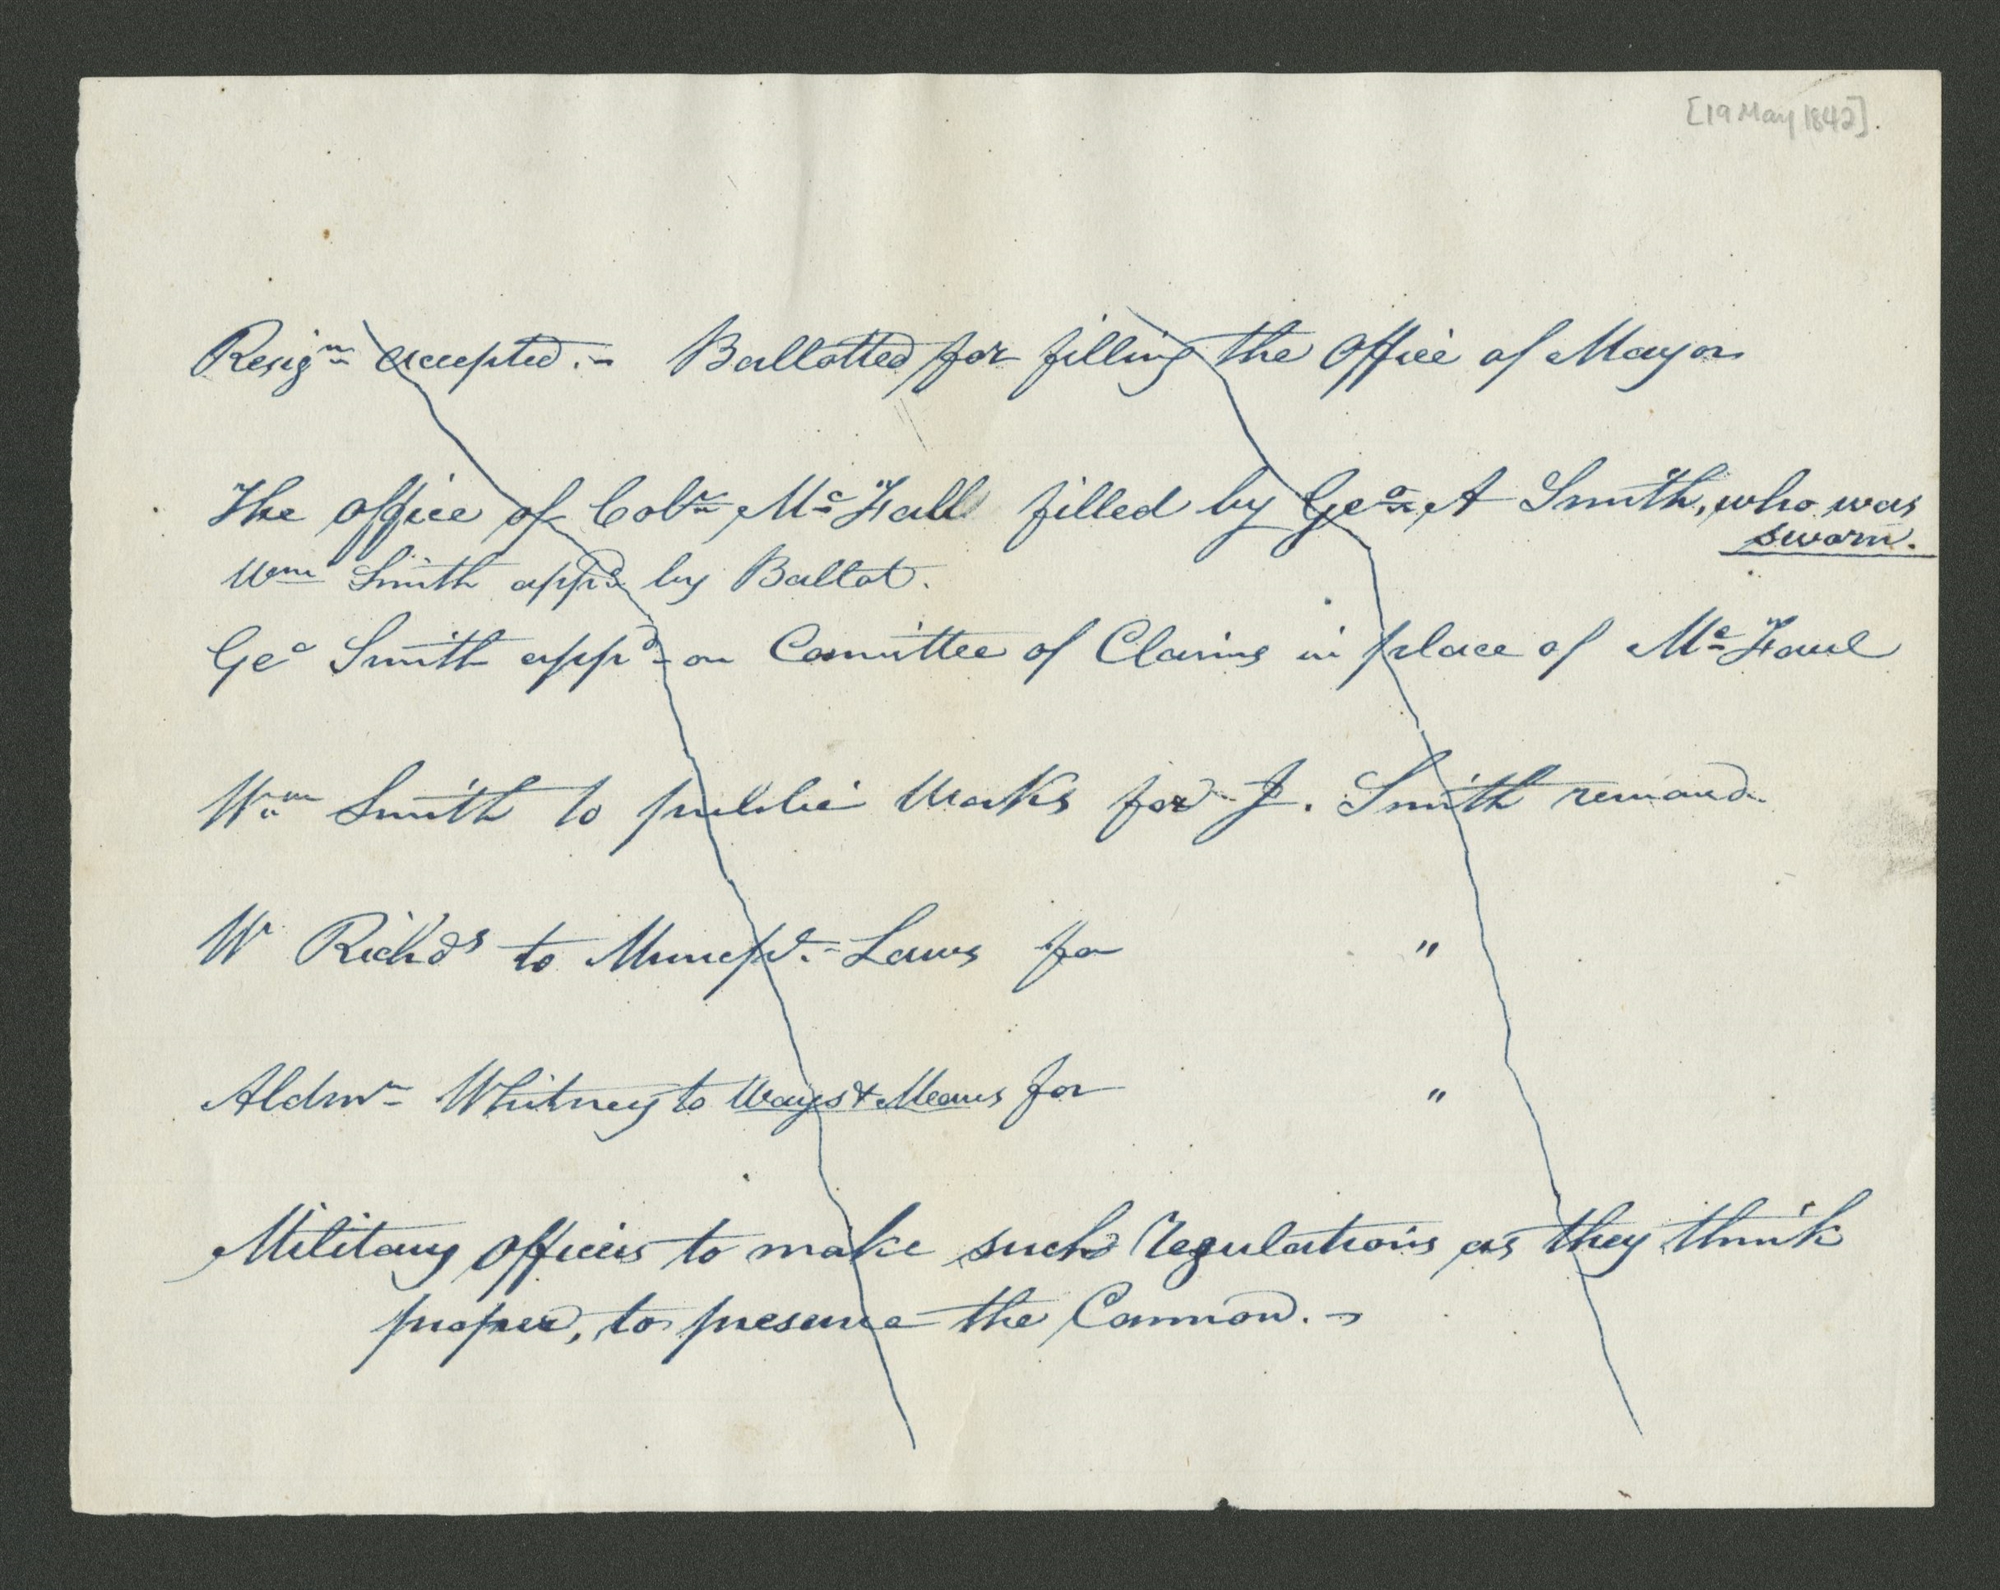 [19 May 1842].
Resign accepted.- Ballotted for filling the Office of Mayor
The office of Coln Mc Fall filled by Geo A Smith, who was
sworn.
Wm Smith appd by Ballot.
Geo Smith appd on Comittee of Claims in place of Mc Faul
Wm Smith to public Works for J. Smith removd.
W Richds to Muncpl. Laws for "
Aldmn Whitney to Ways & Means for "
Military officers to make such regulations as they think
proper, to preserve the Cannon. -